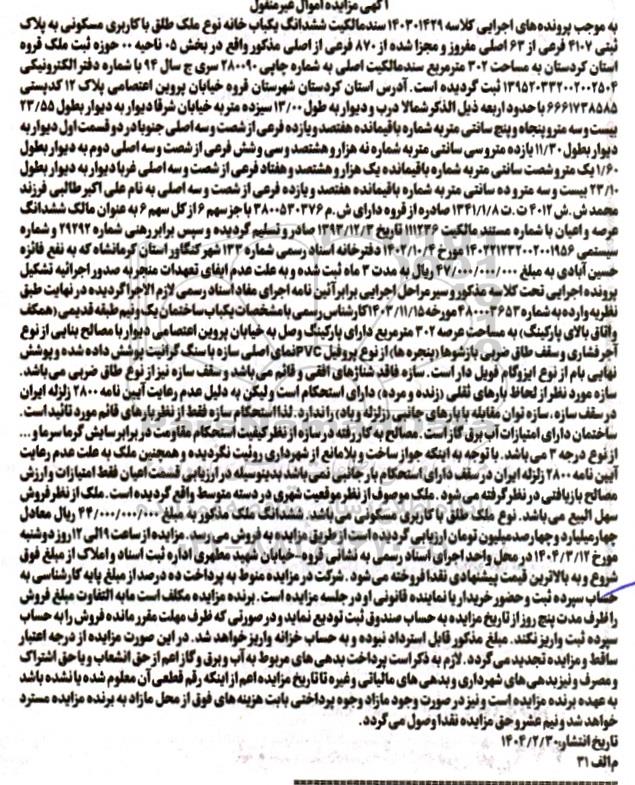 آگهی مزایده اموال غیرمنقول
به موجب پرونده های اجرایی کلاسه ۱۴۰۳۰۱۴۲۹ سندمالکیت ششدانگ یکباب خانه نوع ملک طلق با کاربری مسکونی به پلاک
ثبتی ۴۱۰۷ فرعی از ۶۳ اصلی مفروز و مجزا شده از ۸۷۰ فرعی از اصلی مذکور واقع در بخش ۰۵ ناحیه ۰۰ حوزه ثبت ملک قروه
استان کردستان به مساحت ۳۰۲ مترمربع سندمالکیت اصلی به شماره چاپی ۲۸۰۰۹۰ سری ج سال ۹۴ با شماره دفتر الکترونیکی
۱۳۹۵۲۰۳۳۲۰۰۲۰۰۲۵۰۴ ثبت گردیده است. آدرس استان کردستان شهرستان قروه خیابان پروین اعتصامی پلاک ۱۲ کدپستی
۶۶۶۱۷۳۸۵۸۵ با حدود اربعه ذیل الذکر شمالا درب و دیوار به طول ۱۳/۰۰ سیزده متر به خیابان شرقا دیوار به دیوار بطول ۲۳/۵۵
بیست و سه متر و پنجاه و پنج سانتی متر به شماره باقیمانده هفتصد و یازده فرعی از شصت و سه اصلی جنوبا در دو قسمت اول دیوار به
دیوار بطول ۱۱/۳۰ یازده متر و سی سانتی متر به شماره نه هزار و هشتصد و سی و شش فرعی از شصت و سه اصلی دوم به دیوار بطول
۱/۶۰ یک متر و شصت سانتی متر به شماره باقیمانده یک هزار و هشتصد و هفتاد فرعی از شصت و سه اصلی غربا دیوار به دیوار بطول
۲۳/۱۰ بیست و سه متر و ده سانتی متر به شماره باقیمانده هفتصد و یازده فرعی از شصت و سه اصلی به نام علی اکبر طالبی فرزند
محمد ش.ش ۴۰۱۲ ت.ت ۱۳۴۱/۱/۸ صادره از قروه دارای ش.م ۳۸۰۰۵۳۰۳۷۶ با جز سهم ۶ از کل سهم ۶ به عنوان مالک ششدانگ
عرصه و اعیان با شماره مستند مالکیت ۱۱۱۲۳۶ تاریخ ۱۳۹۲/۱۲/۳ صادر و تسلیم گردیده و سپس برابر رهنی شماره ۲۹۲۹۲ و شماره
سیستمی ۱۴۰۲۲۱۲۳۲۰۰۲۰۰۱۹۵۶ مورخ ۱۴۰۲/۱۰/۴ دفترخانه اسناد رسمی شماره ۱۳۳ شهر کنگاور استان کرمانشاه که به نفع فائزه
حسین آبادی به مبلغ ۴۷/۰۰۰/۰۰۰/۰۰۰ ریال به مدت ۳ ماه ثبت شده و به علت عدم ایفای تعهدات منجر به صدور اجرائیه تشکیل
پرونده اجرایی تحت کلاسه مذکور و سیر مراحل اجرایی برابر آئین نامه اجرای مفاد اسناد رسمی لازم الاجرا گردیده در نهایت طبق
نظریه وارده به شماره ۴۸۰۰۰۳۶۵۳ مورخه ۱۴۰۳/۱۱/۱۵ کارشناس رسمی با مشخصات یکباب ساختمان یک و نیم طبقه قدیمی (همکف
و اتاق بالای پارکینگ) به مساحت عرصه ۳۰۲ مترمربع دارای پارکینگ وصل به خیابان پروین اعتصامی دیوار با مصالح بنایی از نوع
آجر فشاری و سقف طاق ضربی بازشوها (پنجره ها) از نوع پروفیل PVC نمای اصلی سازه با سنگ گرانیت پوشش داده شده و پوشش
نهایی بام از نوع ایزوگام فویل دار است. سازه فاقد شناژهای افقی و قائم می باشد و سقف سازه نیز از نوع طاق ضربی می باشد.
سازه مورد نظر از لحاظ بارهای ثقلی (زنده و مرده) دارای استحکام است ولیکن به دلیل عدم رعایت آیین نامه ۲۸۰۰ زلزله ایران
در سقف سازه، سازه توان مقابله با بارهای جانبی (زلزله و باد) را ندارد. لذا استحکام سازه فقط از نظر بارهای قائم مورد تائید است.
ساختمان دارای امتیازات آب برق گاز است. مصالح به کار رفته در سازه از نظر کیفیت استحکام مقاومت در برابر سایش گرما سرما و...
از نوع درجه ۳ می باشد. با توجه به اینکه جواز ساخت و بلامانع از شهرداری روئیت نگردیده و همچنین ملک به علت عدم رعایت
آیین نامه ۲۸۰۰ زلزله ایران در سقف دارای استحکام بار جانبی نمی باشد بدینوسیله در ارزیابی قسمت اعیان فقط امتیازات و ارزش
مصالح بازیافتی در نظر گرفته می شود. ملک موصوف از نظر موقعیت شهری در دسته متوسط واقع گردیده است. ملک از نظر فروش
سهل البیع می باشد. نوع ملک طلق با کاربری مسکونی می باشد. ششدانگ ملک مذکور به مبلغ ۴۴/۰۰۰/۰۰۰/۰۰۰ ریال معادل
چهار میلیارد و چهارصد میلیون تومان ارزیابی گردیده است از طریق مزایده به فروش می رسد. مزایده از ساعت ۹ الی ۱۲ روز دوشنبه
مورخ ۱۴۰۴/۳/۱۲ در محل واحد اجرای اسناد رسمی به نشانی قروه-خیابان شهید مطهری اداره ثبت اسناد و املاک از مبلغ فوق
شروع و به بالاترین قیمت پیشنهادی نقدا فروخته می شود. شرکت در مزایده منوط به پرداخت ده درصد از مبلغ پایه کارشناسی به
حساب سپرده ثبت و حضور خریدار یا نماینده قانونی او در جلسه مزایده است. برنده مزایده مکلف است مابه التفاوت مبلغ فروش
را ظرف مدت پنج روز از تاریخ مزایده به حساب صندوق ثبت تودیع نماید و در صورتی که ظرف مهلت مقرر مانده فروش را به حساب
سپرده ثبت واریز نکند. مبلغ مذکور قابل استرداد نبوده و به حساب خزانه واریز خواهد شد. در این صورت مزایده از درجه اعتبار
ساقط و مزایده تجدید می گردد. لازم به ذکر است پرداخت بدهی های مربوط به آب و برق و گاز اعم از حق انشعاب و یا حق اشتراک
و مصرف و نیز بدهی های شهرداری و بدهی های مالیاتی و غیره تا تاریخ مزایده اعم از اینکه رقم قطعی آن معلوم شده یا نشده باشد
به عهده برنده مزایده است و نیز در صورت وجود مازاد وجوه پرداختی بابت هزینه های فوق از محل مازاد به برنده مزایده مسترد
خواهد شد و نیم عشر و حق مزایده نقدا وصول می گردد.
تاریخ انتشار: ۱۴۰۴/۲/۳۰
م الف ۳۱